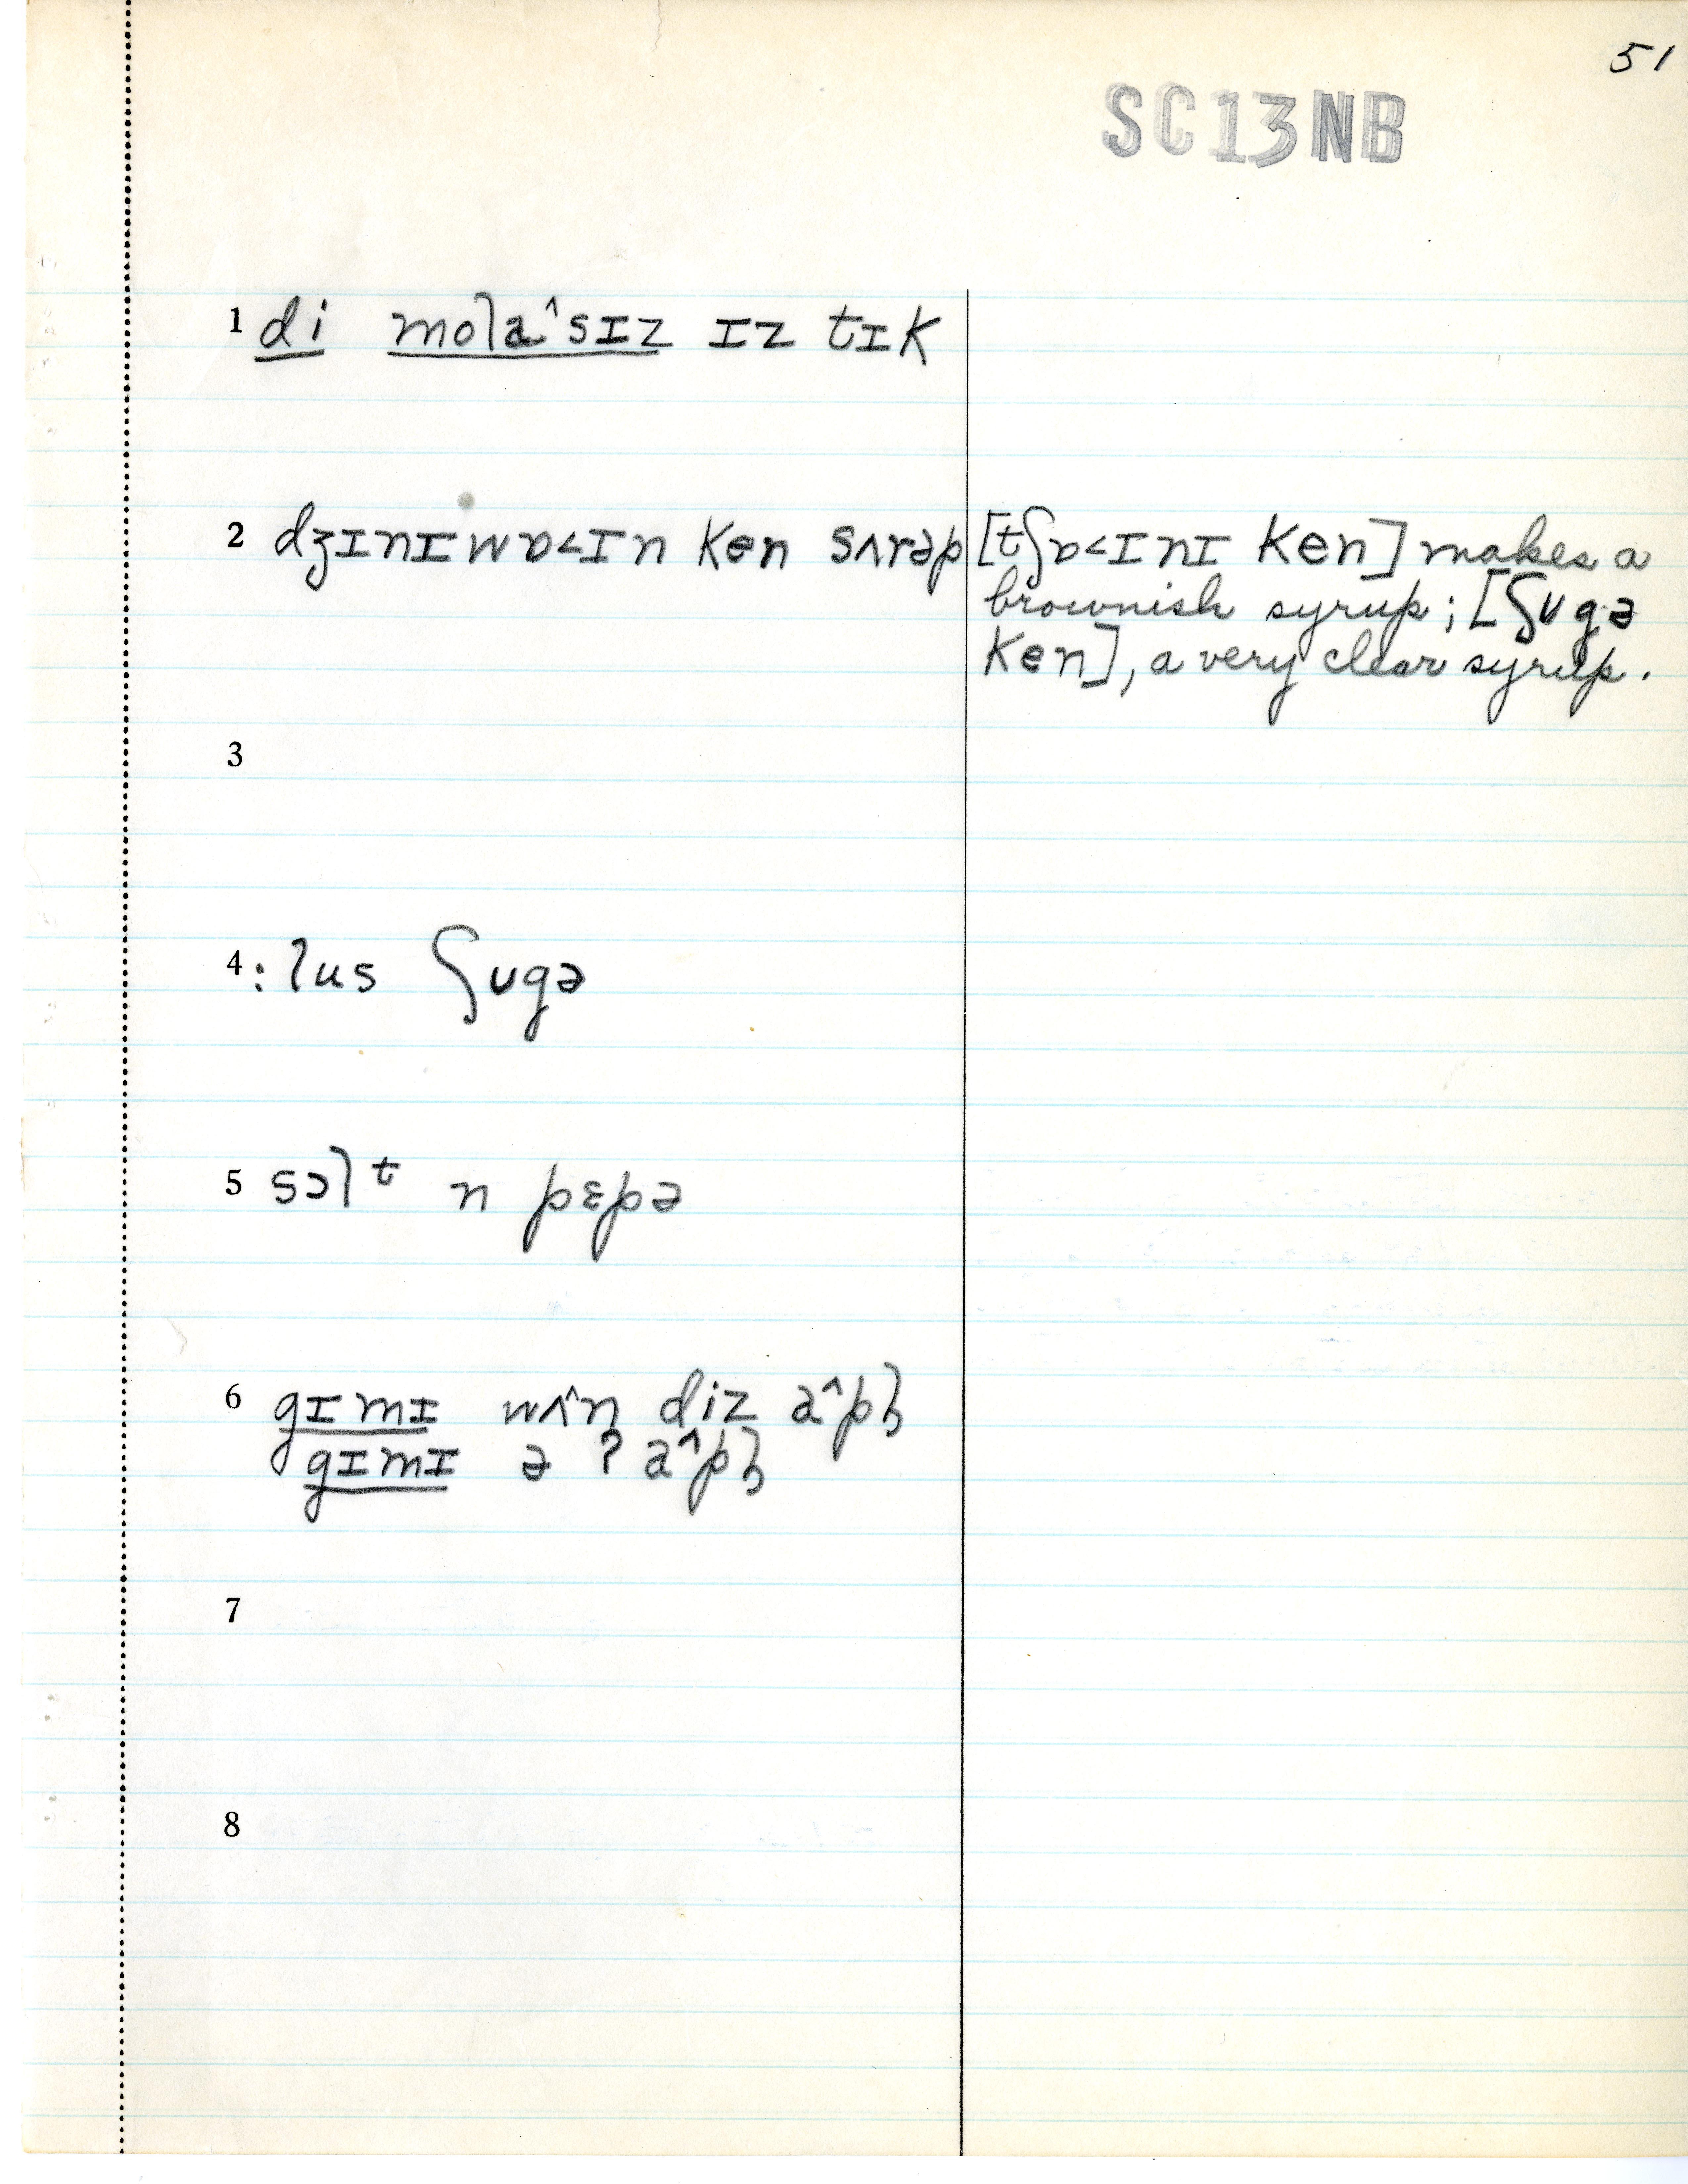 51
SC13NB
1 di molaˆsɪz ɪz tɪk
2 dʒɪnɪwɒ<ɪn ken sʌrəp
[tʃɒ<ɪnɪ ken] makes a
brownish syrup; [ʃʊgə
ken], a very clear syrup.
3
4 : lus ʃʊgə
5 sɔlᵗ n pɛpə
6 gɪmɪ wʌˆn diz aˆpl̩
gɪmɪ ə ʔ aˆpl̩
7
8